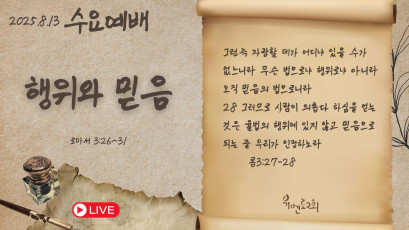 2025.8.13 수요예배
행위와 믿음
로마서 3:26~31
LIVE
그런즉 자랑할 데가 어디냐 있을 수가
없느니라 무슨 법으로냐 행위로냐 아니라
오직 믿음의 법으로니라
28 그러므로 사람이 의롭다 하심을 얻는
것은 율법의 행위에 있지 않고 믿음으로
되는 줄 우리가 인정하노라
롬3:27-28